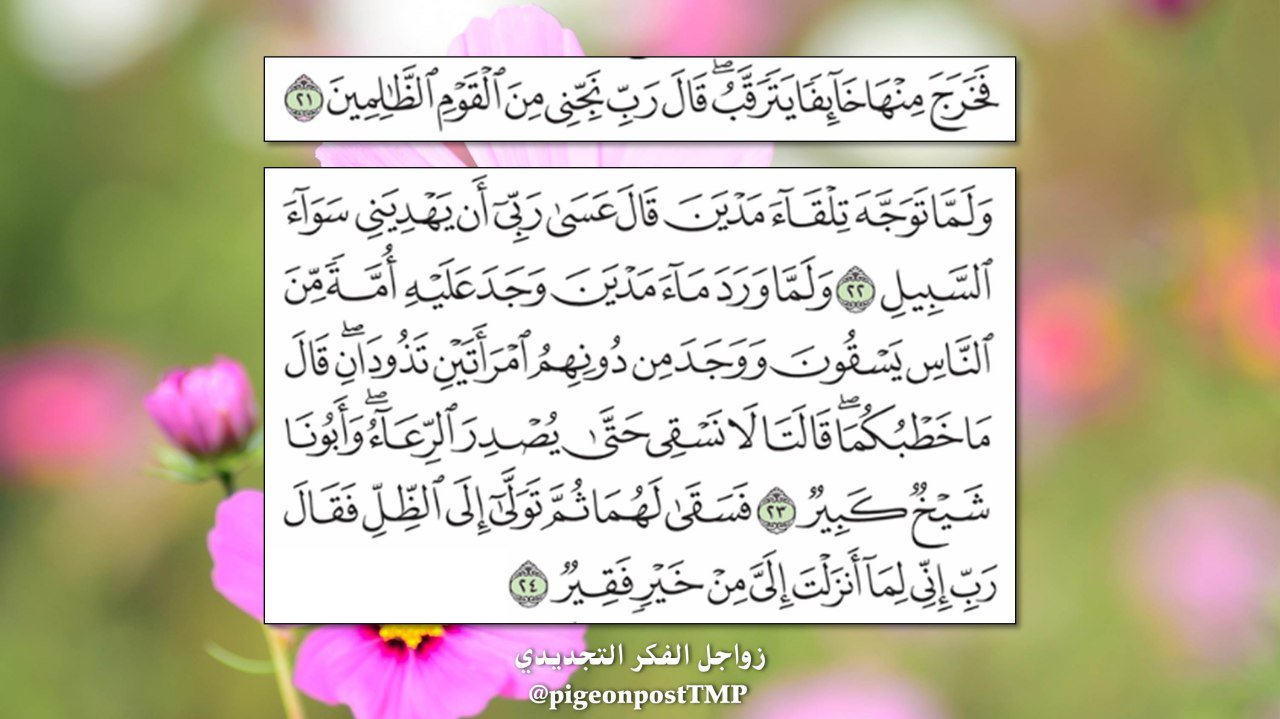 فَخَرَجَ مِنْهَا خَآئِفًا يَتَرَقَّبُ ۖ قَالَ رَبِّ نَجِّنِى مِنَ ٱلْقَوْمِ ٱلظَّـٰلِمِينَ ٢١
وَلَمَّا تَوَجَّهَ تِلْقَآءَ مَدْيَنَ قَالَ عَسَىٰ رَبِّىٓ أَن يَهْدِيَنِى سَوَآءَ
ٱلسَّبِيلِ ٢٢ وَلَمَّا وَرَدَ مَآءَ مَدْيَنَ وَجَدَ عَلَيْهِ أُمَّةً مِّنَ
ٱلنَّاسِ يَسْقُونَ وَوَجَدَ مِن دُونِهِمُ ٱمْرَأَتَيْنِ تَذُودَانِ ۖ قَالَ
مَا خَطْبُكُمَا ۖ قَالَتَا لَا نَسْقِى حَتَّىٰ يُصْدِرَ ٱلرِّعَآءُ ۖ وَأَبُونَا
شَيْخٌ كَبِيرٌ ٢٣ فَسَقَىٰ لَهُمَا ثُمَّ تَوَلَّىٰٓ إِلَى ٱلظِّلِّ فَقَالَ
رَبِّ إِنِّى لِمَآ أَنزَلْتَ إِلَىَّ مِنْ خَيْرٍ فَقِيرٌ ٢٤
زواجل الفكر التجديدي
@pigeonpostTMP